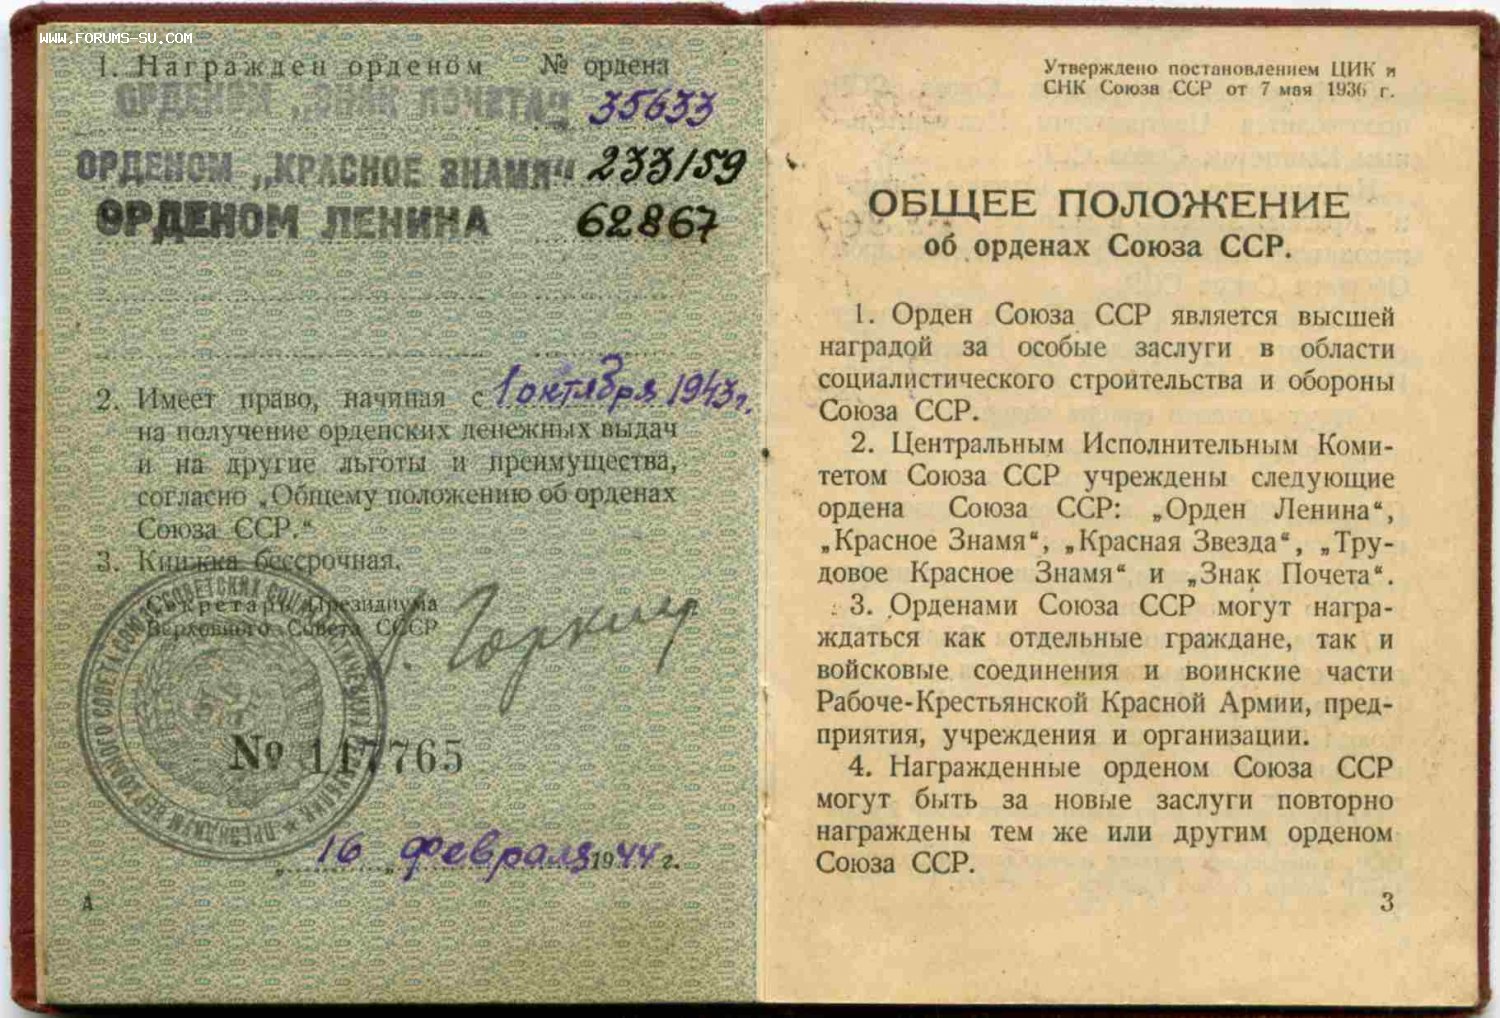 www.forums-su.com
1. Награжден орденом № ордена
ОРДЕНОМ „ЗНАК ПОЧЕТА" 35633
ОРДЕНОМ „КРАСНОЕ ЗНАМЯ" 233159
ОРДЕНОМ ЛЕНИНА 62867
2. Имеет право, начиная с 1 октября 1943 г.
на получение орденских денежных выдач
и на другие льготы и преимущества,
согласно „Общему положению об орденах
Союза ССР."
3. Книжка бессрочная.
Секретарь Президиума
Верховного Совета СССР
Горкин
№ 117765
„16" февраля 1944 г.
А
Утверждено постановлением ЦИК и
СНК Союза ССР от 7 мая 1936 г.
ОБЩЕЕ ПОЛОЖЕНИЕ
об орденах Союза ССР.
1. Орден Союза ССР является высшей
наградой за особые заслуги в области
социалистического строительства и обороны
Союза ССР.
2. Центральным Исполнительным Коми-
тетом Союза ССР учреждены следующие
ордена Союза ССР: „Орден Ленина",
„Красное Знамя", „Красная Звезда", „Тру-
довое Красное Знамя" и „Знак Почета".
3. Орденами Союза ССР могут награ-
ждаться как отдельные граждане, так и
войсковые соединения и воинские части
Рабоче-Крестьянской Красной Армии, пред-
приятия, учреждения и организации.
4. Награжденные орденом Союза ССР
могут быть за новые заслуги повторно
награждены тем же или другим орденом
Союза ССР.
3